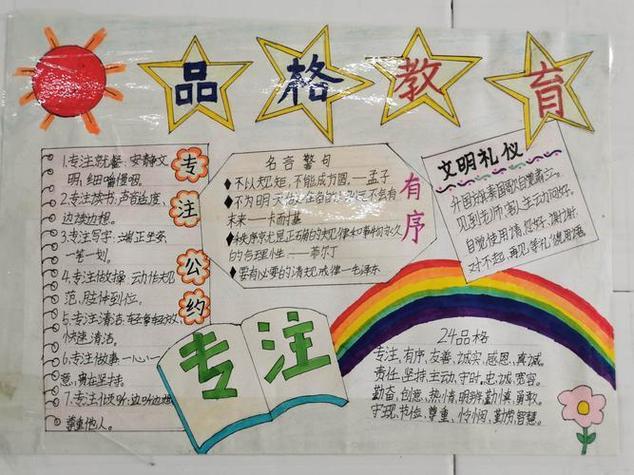 品格教育
专注公约
1.专注就餐:安静文
明,细嚼慢咽。
2.专注读书:声音适度、
边读边想。
3.专注写字:端正坐姿、
一笔一划。
4.专注做操:动作规
范,肢体到位。
5.专注清洁:轻拿轻放、
快速清洁。
6.专注做事:一心一
意,贵在坚持。
7.专注倾听:边听边想
尊重他人。
名言警句
◆不以规矩,不能成方圆。——孟子
◆不为明天做准备的人永远不会有
未来——卡耐基
◆秩序
◆需有必要的清规戒律——毛泽东
有序
文明礼仪
升国旗奏国歌自觉肃立。
见到老师、客人主动问好。
自觉使用请、您好、谢谢、
对不起、再见等礼貌用语
专注
24品格
专注、有序、友善、诚实、感恩、真诚。
责任、坚持、主动、守时、忠诚、宽容。
勤奋、创意、热情、明辨、勤慎、勇敢。
守规、节俭、尊重、怜悯、勤劳、智慧。